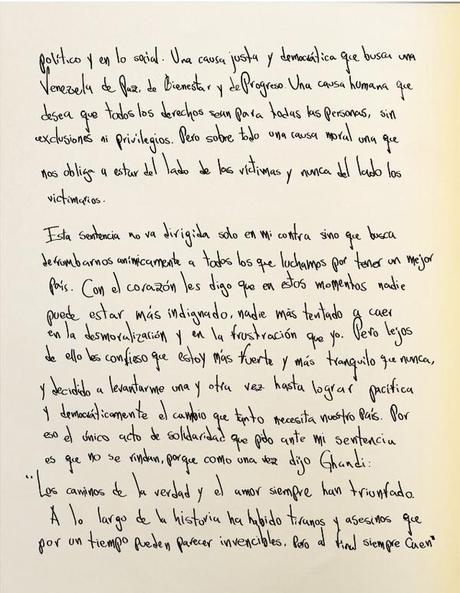 político y en lo social. Una causa justa y democrática que busca una
Venezuela de Paz, de Bienestar y de Progreso Una causa humana que
desea que todos los derechos sean para todas las personas, sin
exclusiones ni privilegios. Pero sobre todo una causa moral una que
nos obliga a estar del lado de las víctimas y nunca del lado los
victimarios.
Esta sentencia no va dirigida solo en mi contra sino que busca
derrumbarnos anímicamente a todos los que luchamos por tener un mejor
País. Con el corazón les digo que en estos momentos nadie
puede estar más indignado, nadie más tentado a caer
en la desmoralización y en la frustración que yo. Pero lejos
de ello les confieso que estoy más fuerte y más tranquilo que nunca,
y decidido a levantarme una y otra vez hasta lograr pacífica
y democráticamente el cambio que tanto necesita nuestro País. Por
eso el único acto de solidaridad que pido ante mi sentencia
es que no se rindan, porque como una vez dijo Ghandi:
"Los caminos de la verdad y el amor siempre han triunfado.
A lo largo de la historia ha habido tiranos y asesinos que
por un tiempo pueden parecer invencibles. Pero al final siempre Caen"